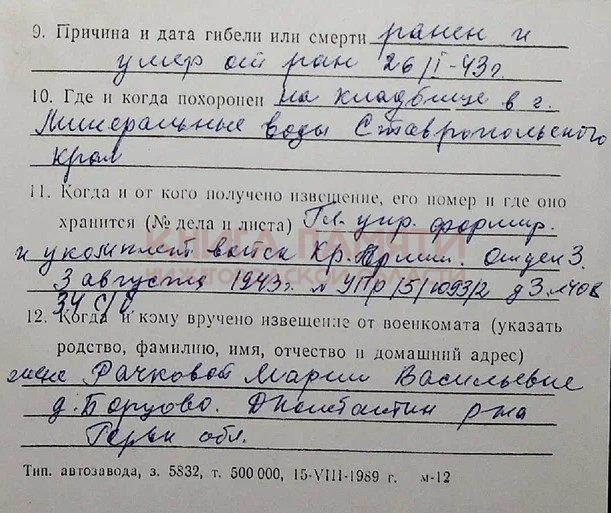 9. Причина и дата гибели или смерти ранен и
умер от ран 26/I-43г.
10. Где и когда похоронен на кладбище в г.
Минеральные воды Ставропольского
края
11. Когда и от кого получено извещение, его номер и где оно
хранится (№ дела и листа) Гл. упр. формир.
и укомплект войск Кр. Армии. Отдел 3.
3 августа 1943г. № УПр/5/1093/2
34 с/с
КНИГА ПАМЯТИ
НИЖЕГОРОДСКОЙ ОБЛАСТИ
12. Когда и кому вручено извещение от военкомата (указать
родство, фамилию, имя, отчество и домашний адрес)
жене Рачковой Марии Васильевне
д. Борцово. Д Константин р-на
обл.
Тип. автозавода, з. 5832, т. 500 000, 15-VIII-1989 г. м-12